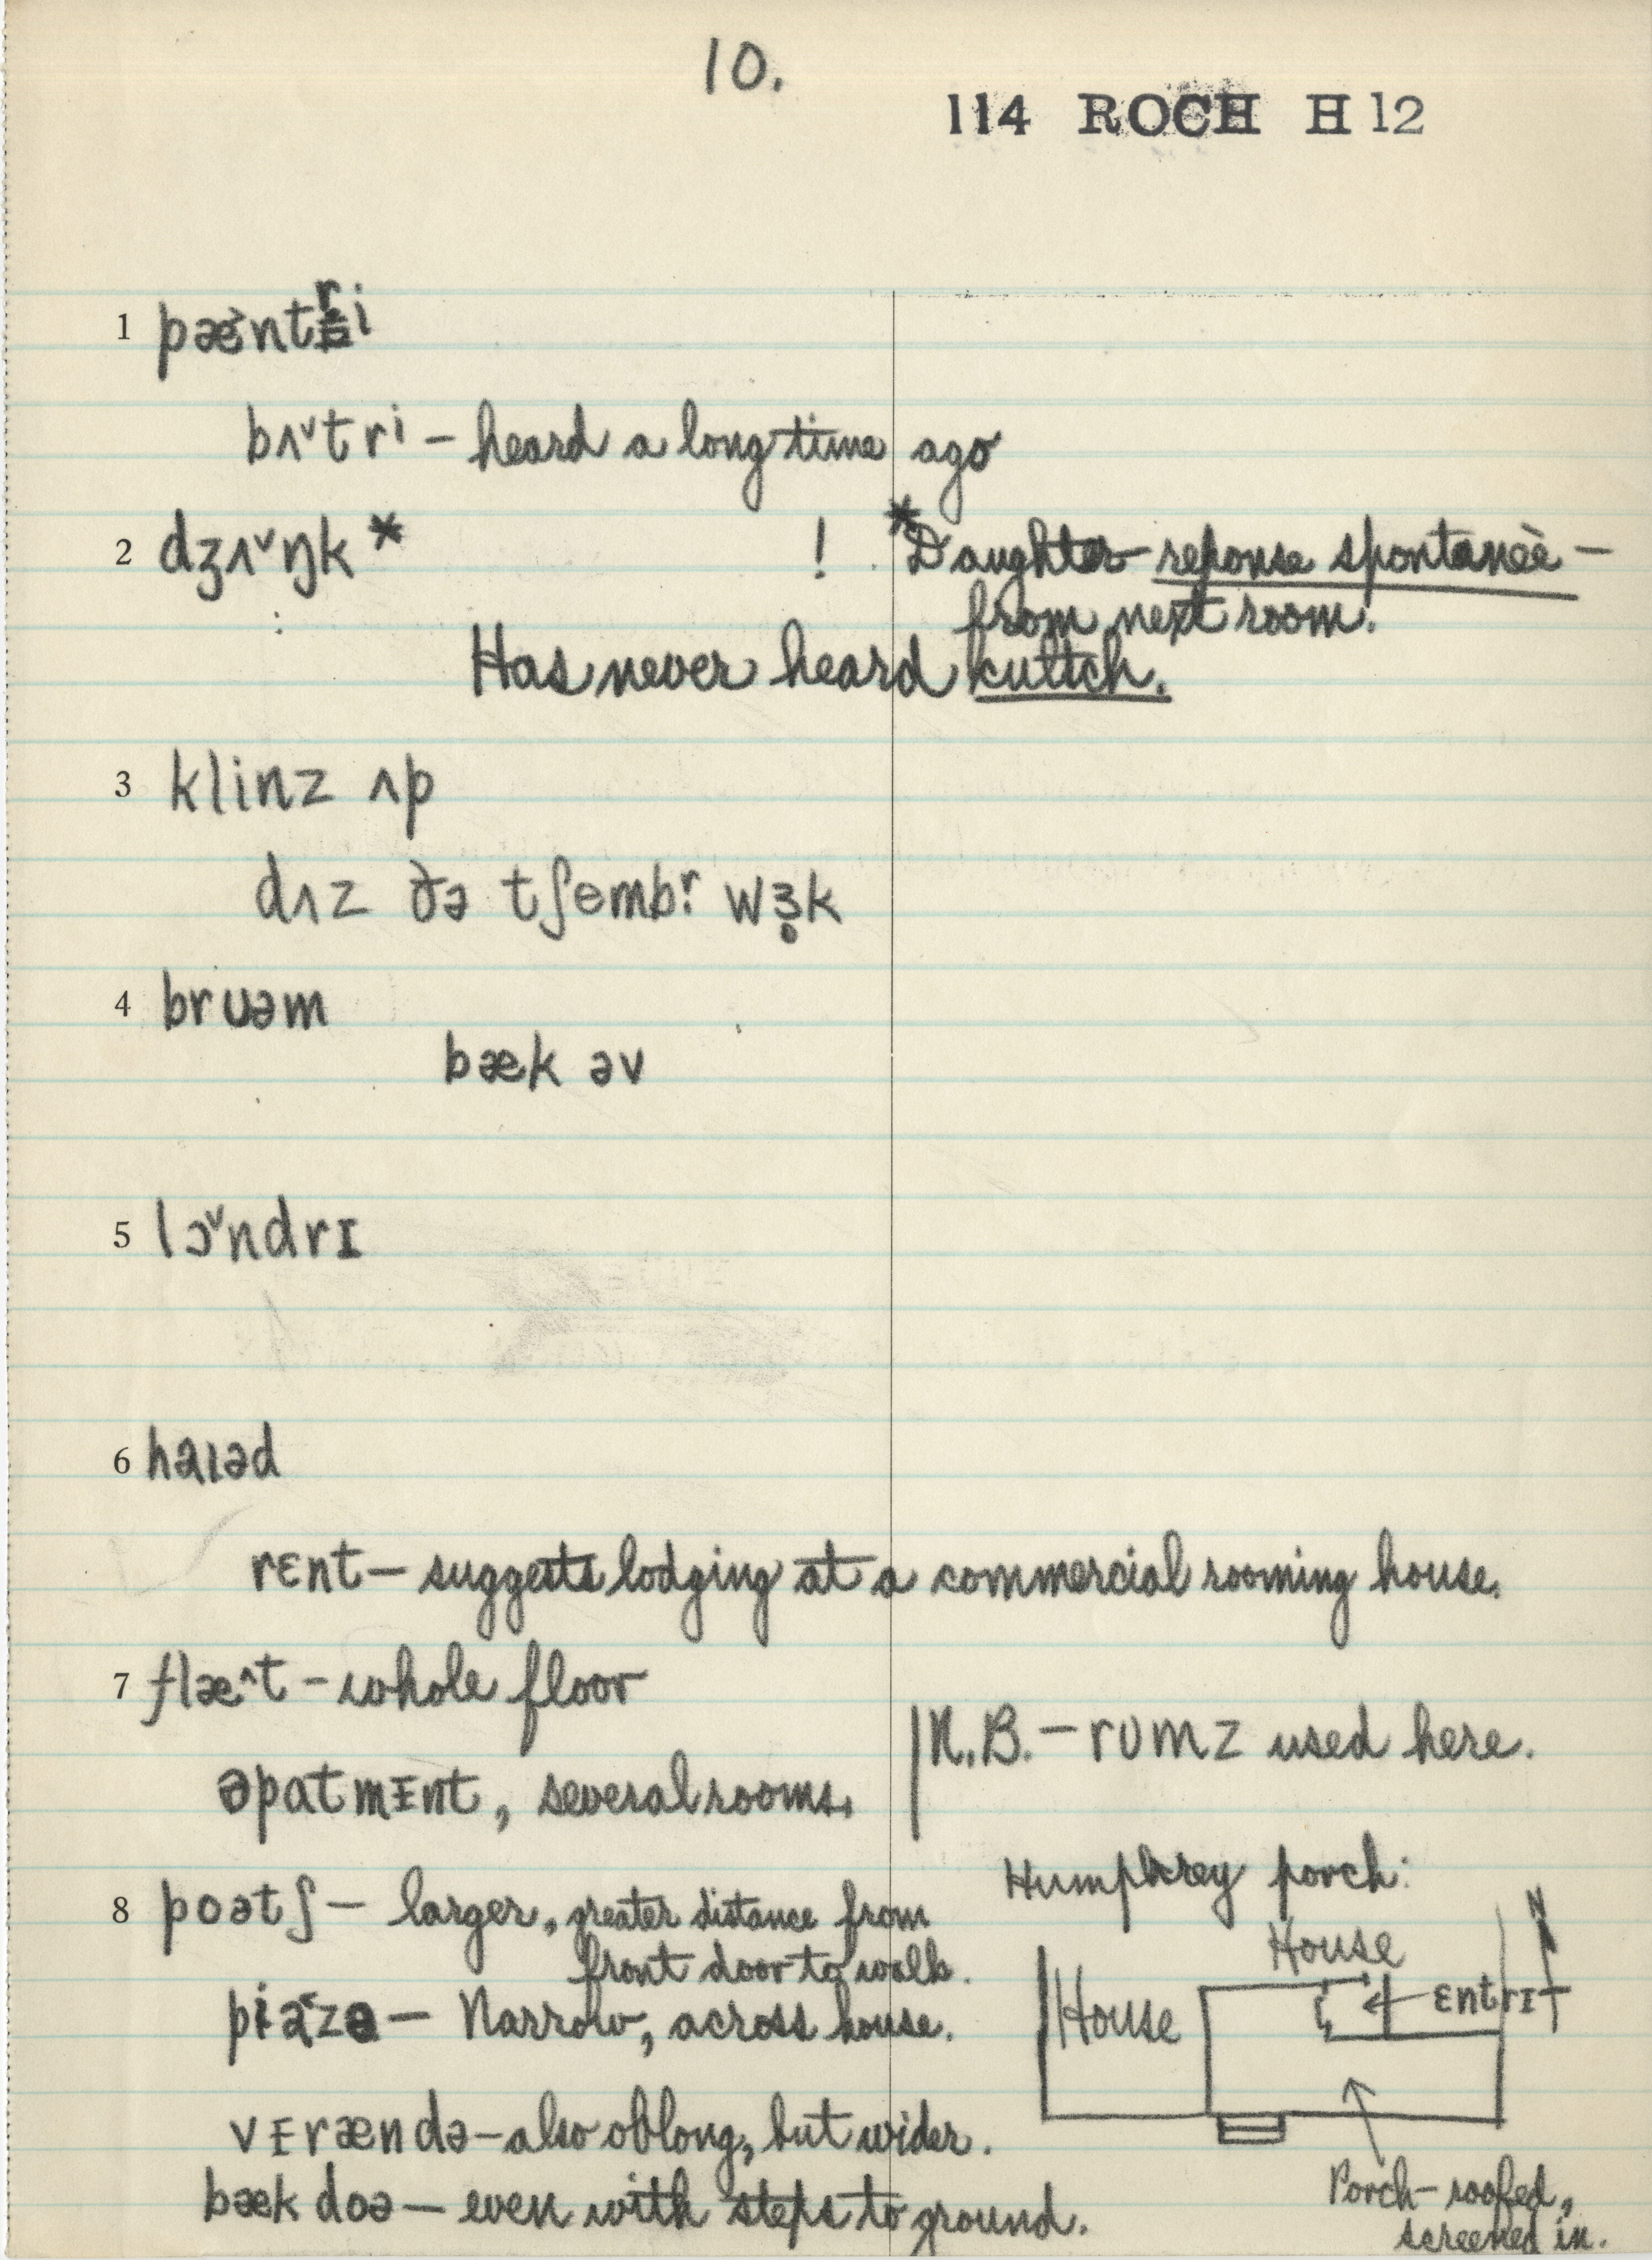 10.
114 ROCH H 12
1 pæ̌ntri
bʌ˅tri – heard a long time ago
2 dʒʌ˅ŋk * ! *Daughter – reponse spontaneè –
from next room.
Has never heard cultch.
3 klinz ʌp
dʌz ðə tʃembr wɜk
4 bruəm
bæk əv
5 lɔ˅ndrɪ
6 haɪəd
rɛnt – suggests lodging at a commercial rooming house.
7 flæ^t – whole floor
N.B. – rʊmz used here.
əpatmɪnt, several rooms.
Humphrey porch:
8 poətʃ – larger, greater distance from
front door to walk.
N
House
House
ɛntrɪ
piazə – Narrow, across house.
vɪrændə – also oblong, but wider.
bæk doə – even with steps to ground.
Porch – roofed,
screened in.